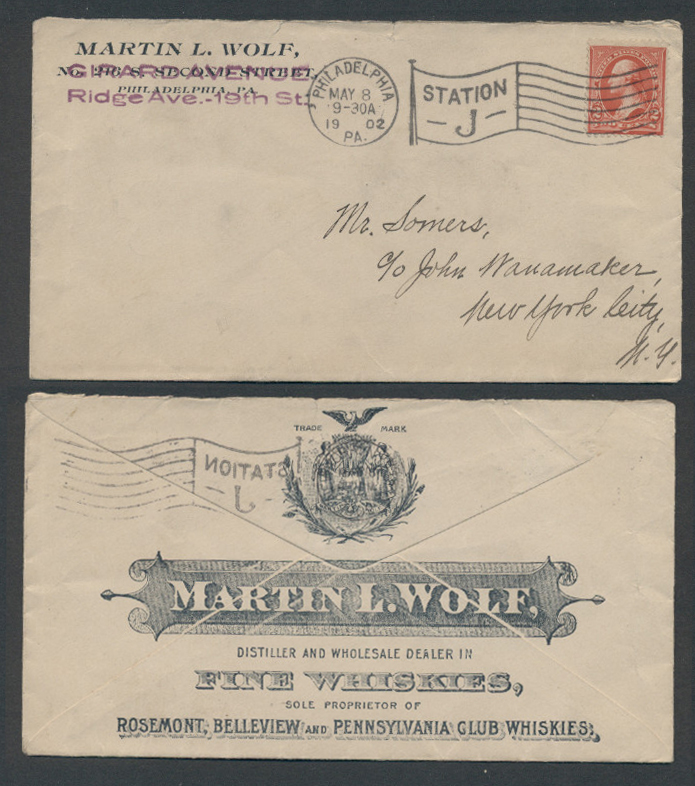 MARTIN L. WOLF,
No. 216 S. SECOND STREET,
GIRARD AVENUE
PHILADELPHIA, PA.
Ridge Ave.-19th St.
PHILADELPHIA
MAY 8
9-30A
19 02
PA.
STATION
- J -
Mr. Somers,
c/o John Wanamaker,
New York City,
N.Y.
TRADE MARK
STATION
- J -
MARTIN L. WOLF,
DISTILLER AND WHOLESALE DEALER IN
FINE WHISKIES,
SOLE PROPRIETOR OF
ROSEMONT, BELLEVIEW AND PENNSYLVANIA CLUB WHISKIES.